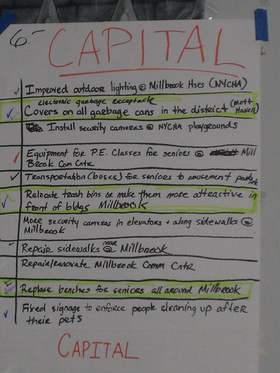 6-
CAPITAL
Improved outdoor lighting @ Millbrook Hses (NYCHA)
electronic garbage receptacle
Covers on all garbage cans in the district (Mott Haven)
Install security cameras @ NYCHA playgrounds
Equipment for P.E. Classes for seniors @ Mill
Brook Com Cntr.
Transportation (buses) for seniors to amusement parks
Relocate trash bins or make them more attractive in
front of bldgs Millbrook
More security cameras in elevators + along sidewalks @
Millbrook
Repair sidewalks @ Millbrook
Repair/renovate Millbrook Cmm Cntr
Replace benches for seniors all around Millbrook
Fixed signage to enforce people cleaning up after
their pets
CAPITAL